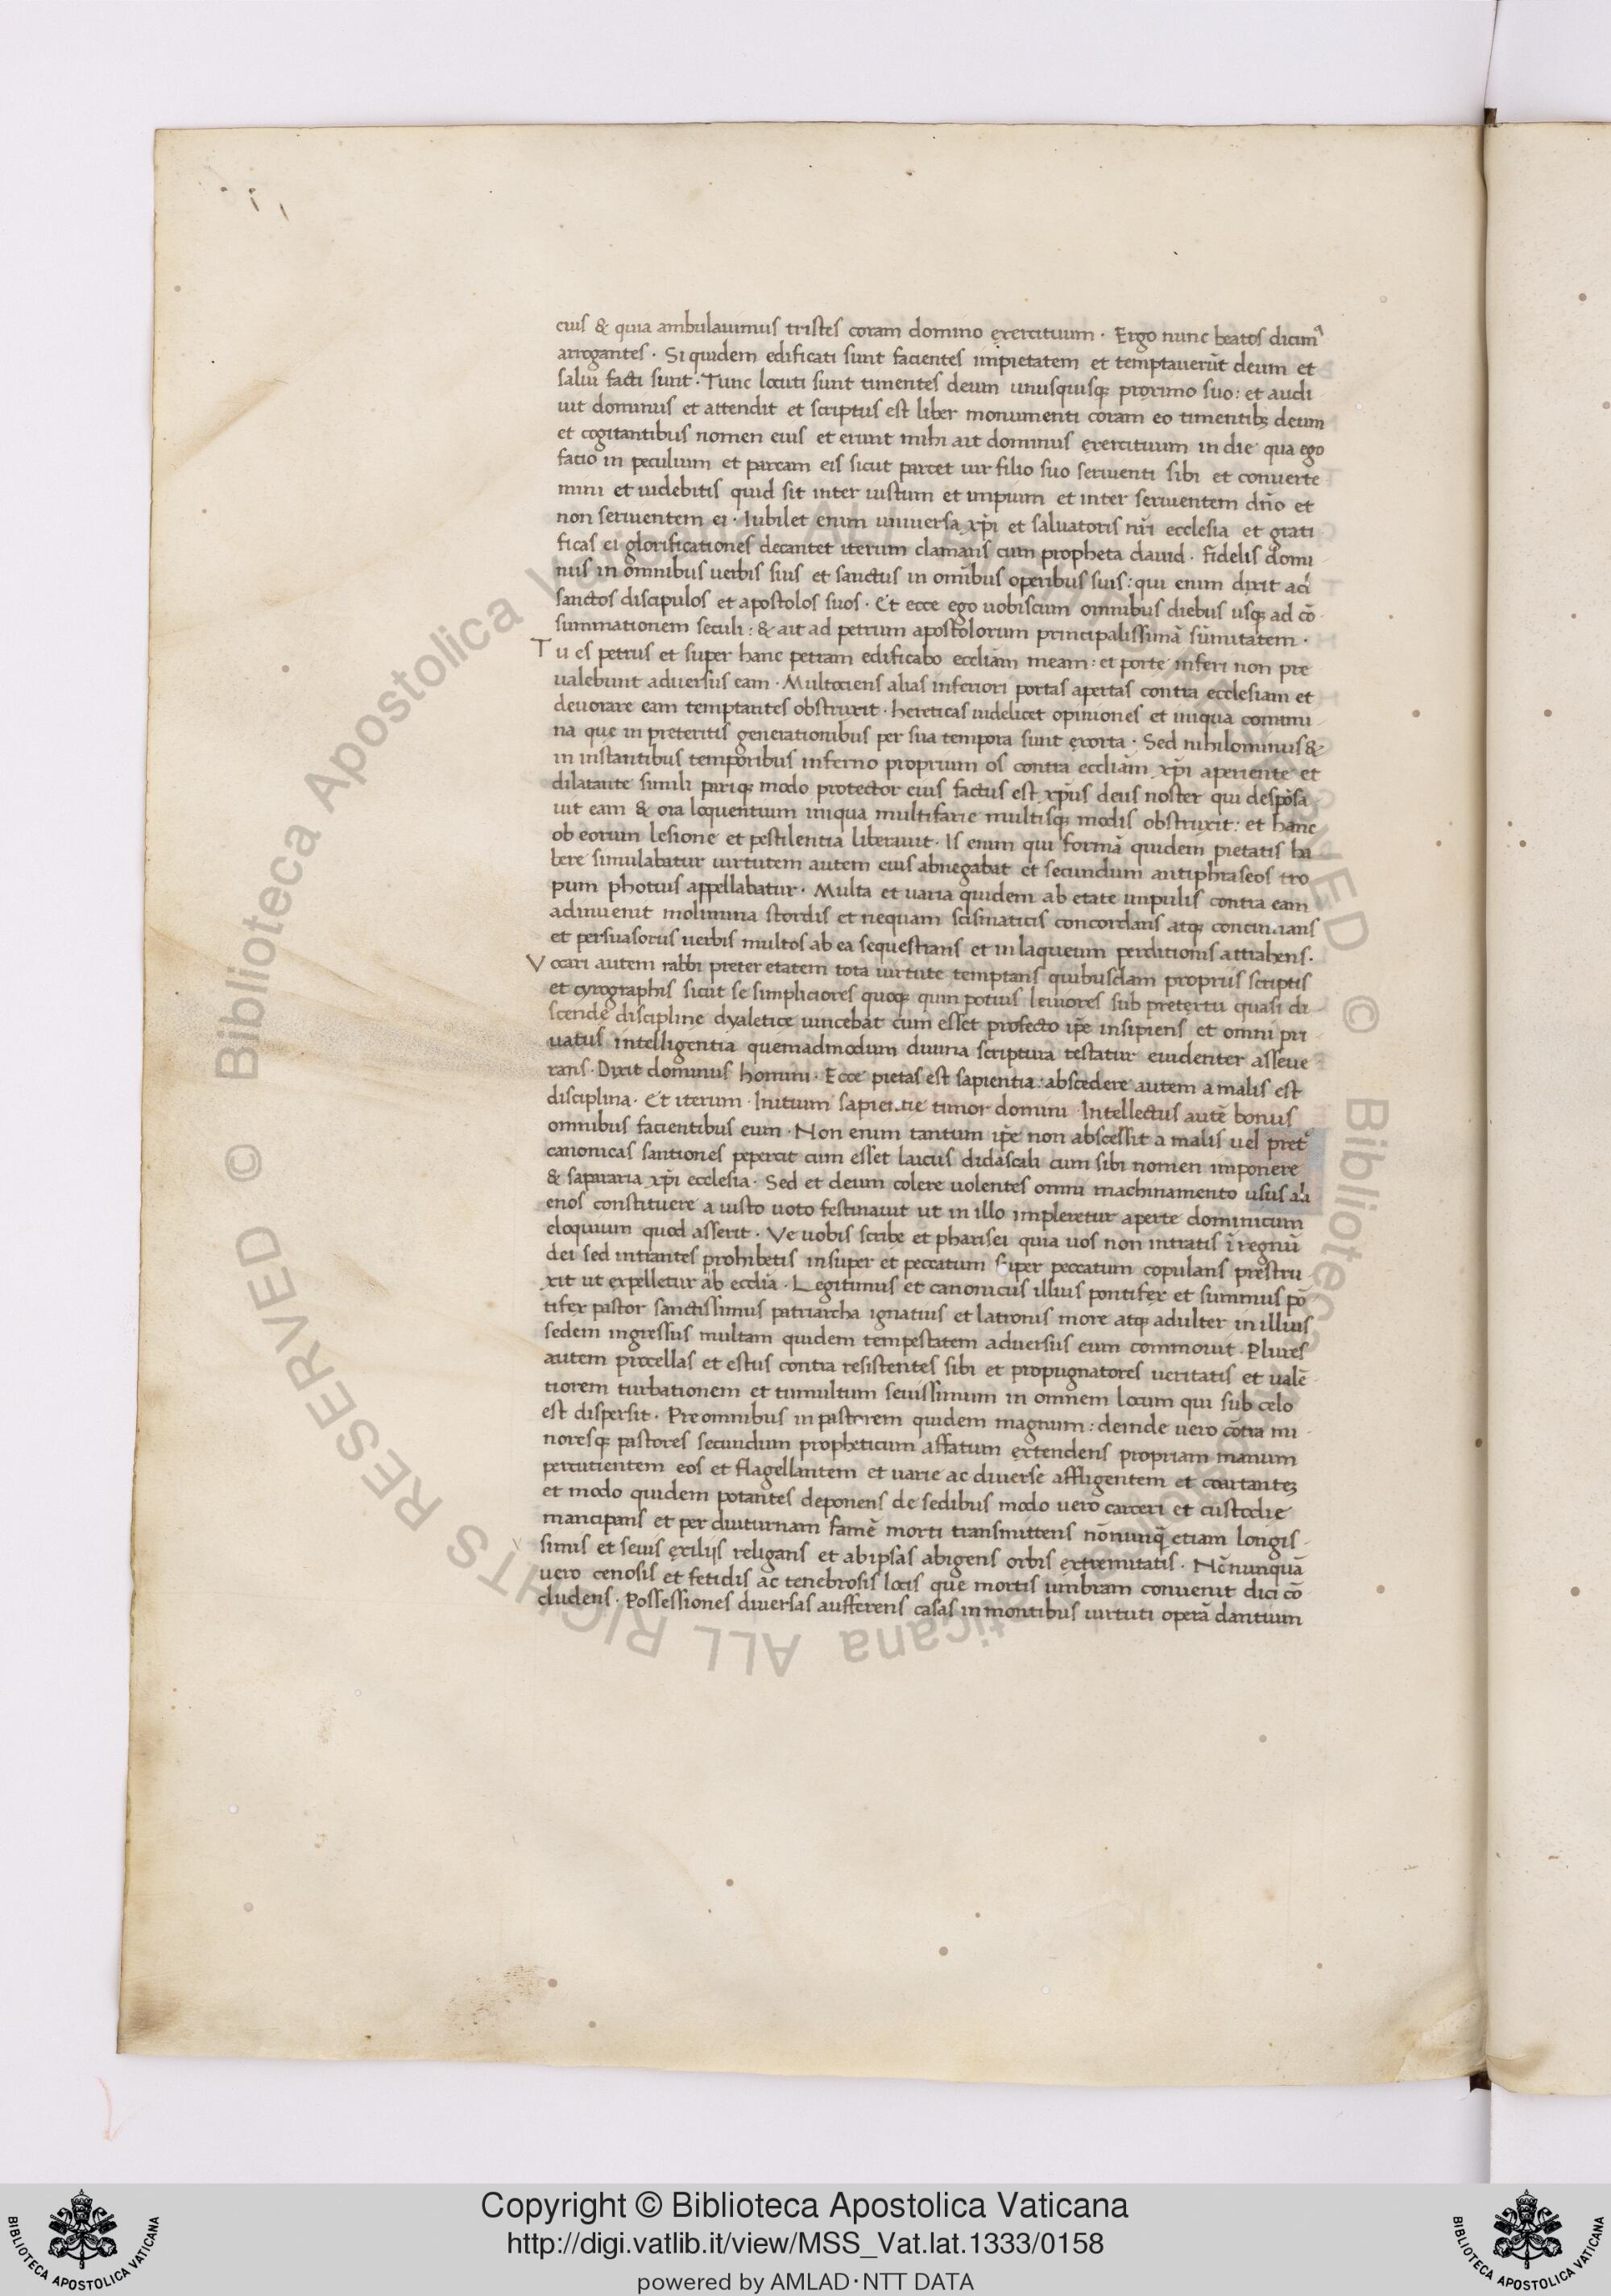 eius & quia ambulauimus tristes coram domino exercituum · Ergo nunc beatos dicimꝰ
arrogantes · Siquidem edificati sunt facientes impietatem et temptauerūt deum et
salui facti sunt · Tunc locuti sunt timentes deum unusquisqꝫ proximo suo : et audi
uit dominus et attendit et scriptus est liber monumenti coram eo timentibꝫ deum
et cogitantibus nomen eius et erunt mihi ait dominus exercituum in die qua ego
facio in peculium et parcam eis sicut parcet uir filio suo seruienti sibi et conuerte
mini et uidebitis quid sit inter iustum et impium et inter seruientem dn̄o et
non seruientem ei · Iubilet enim uniuersa xp̄i et saluatoris nr̄i ecclesia et grati
ficas ei glorificationes decantet iterum clamans cum propheta dauid · Fidelis domi
nus in omnibus uerbis suis et sanctus in omībus operibus suis : qui enim dixit ad
sanctos discipulos et apostolos suos · Et ecce ego uobiscum omnibus diebus usqꝫ ad cō
summationem seculi : & ait ad petrum apostolorum principalissimā sūmitatem ·
Tu es petrus et super hanc petram edificabo eccliām meam : et porte inferi non pre
ualebunt aduersus eam · Multociens alias inferiori portas apertas contra ecclesiam et
deuorare eam temptantes obstruxit · hereticas uidelicet opiniones et iniqua commi
na que in preteritis generationibus per sua tempora sunt exorta · Sed nihilominus &
in instantibus temporibus inferno proprium os contra eccliām xp̄i aperiente et
dilatante simili pariqꝫ modo protector eius factus est xp̄us deus noster qui desponsa
uit eam & ora loquentium iniqua multifarie multisqꝫ modis obstruxit : et hanc
ob eorum lesione et pestilentia liberauit · Is enim qui formā quidem pietatis ha
bere simulabatur uirtutem autem eius abnegabat et secundum antiphraseos tro
pum photius appellabatur · Multa et uaria quidem ab etate impulis contra eam
adinuenit molimina stordis et nequam scismaticis concordans atqꝫ concinnans
et persuasoriis uerbis multos ab ea sequestrans et in laqueum perditionis attrahens ·
Vocari autem rabbi preter etatem tota uirtute temptans quibusdam propriis scriptis
et cyrographis sicut se simpliciores quoqꝫ quin potius leuiores sub pretextu quasi di
scende discipline dyaletice uincebat cum esset profecto ip̄e insipiens et omni pri
uatus intelligentia quemadmodum diuina scriptura testatur euidenter asseue
rans · Dixit dominus homini · Ecce pietas est sapientia : abscedere autem a malis est
disciplina · Et iterum · Initium sapientie timor domini · Intellectus autē bonus
omnibus facientibus eum · Non enim tantum ip̄e non abscessit a malis uel pret
canonicas santiones pepercit cum esset laicus didascali cum sibi nomen imponere
& sapararia xp̄i ecclesia · Sed et deum colere uolentes omni machinamento usus ali
enos constituere a iusto uoto festinauit ut in illo impleretur aperte dominicum
eloquium quod asserit · Ve uobis scribe et pharisei quia uos non intratis ī regnū
dei sed intrantes prohibetis insuper et peccatum super peccatum copulans prestru
xit ut expelletur ab ecclīa · Legitimus et canonicus illius pontifex et summus pō
tifex pastor sanctissimus patriarcha ignatius et latronis more atqꝫ adulter in illius
sedem ingressus multam quidem tempestatem aduersus eum commouit · Plures
autem procellas et estus contra resistentes sibi et propugnatores ueritatis et ualē
tiorem turbationem et tumultum seuissimum in omnem locum qui sub celo
est dispersit · Pre omnibus in pastorem quidem magnum : deinde uero cōtra mi
noresqꝫ pastores secundum propheticum affatum extendens propriam manum
percutientem eos et flagellantem et uarie ac diuerse affligentem et coartanteꝫ
et modo quidem potantes deponens de sedibus modo uero carceri et custodie
mancipans et per diuturnam famē morti transmittens nōnunq̄ etiam longis
simis et seuis exilijs religans et ab ipsas abigens orbis extremitatis · Nōnunquā
uero cenosis et fetidis ac tenebrosis locis que mortis umbram conuenit dici cō
cludens · Possessiones diuersas aufferens casas in montibus uirtuti operā dantium
Copyright © Biblioteca Apostolica Vaticana
http://digi.vatlib.it/view/MSS_Vat.lat.1333/0158
powered by AMLAD·NTT DATA
BIBLIOTECA APOSTOLICA VATICANA
BIBLIOTECA APOSTOLICA VATICANA
© Biblioteca Apostolica Vaticana ALL RIGHTS RESERVED © Biblioteca Apostolica Vaticana ALL RIGHTS RESERVED